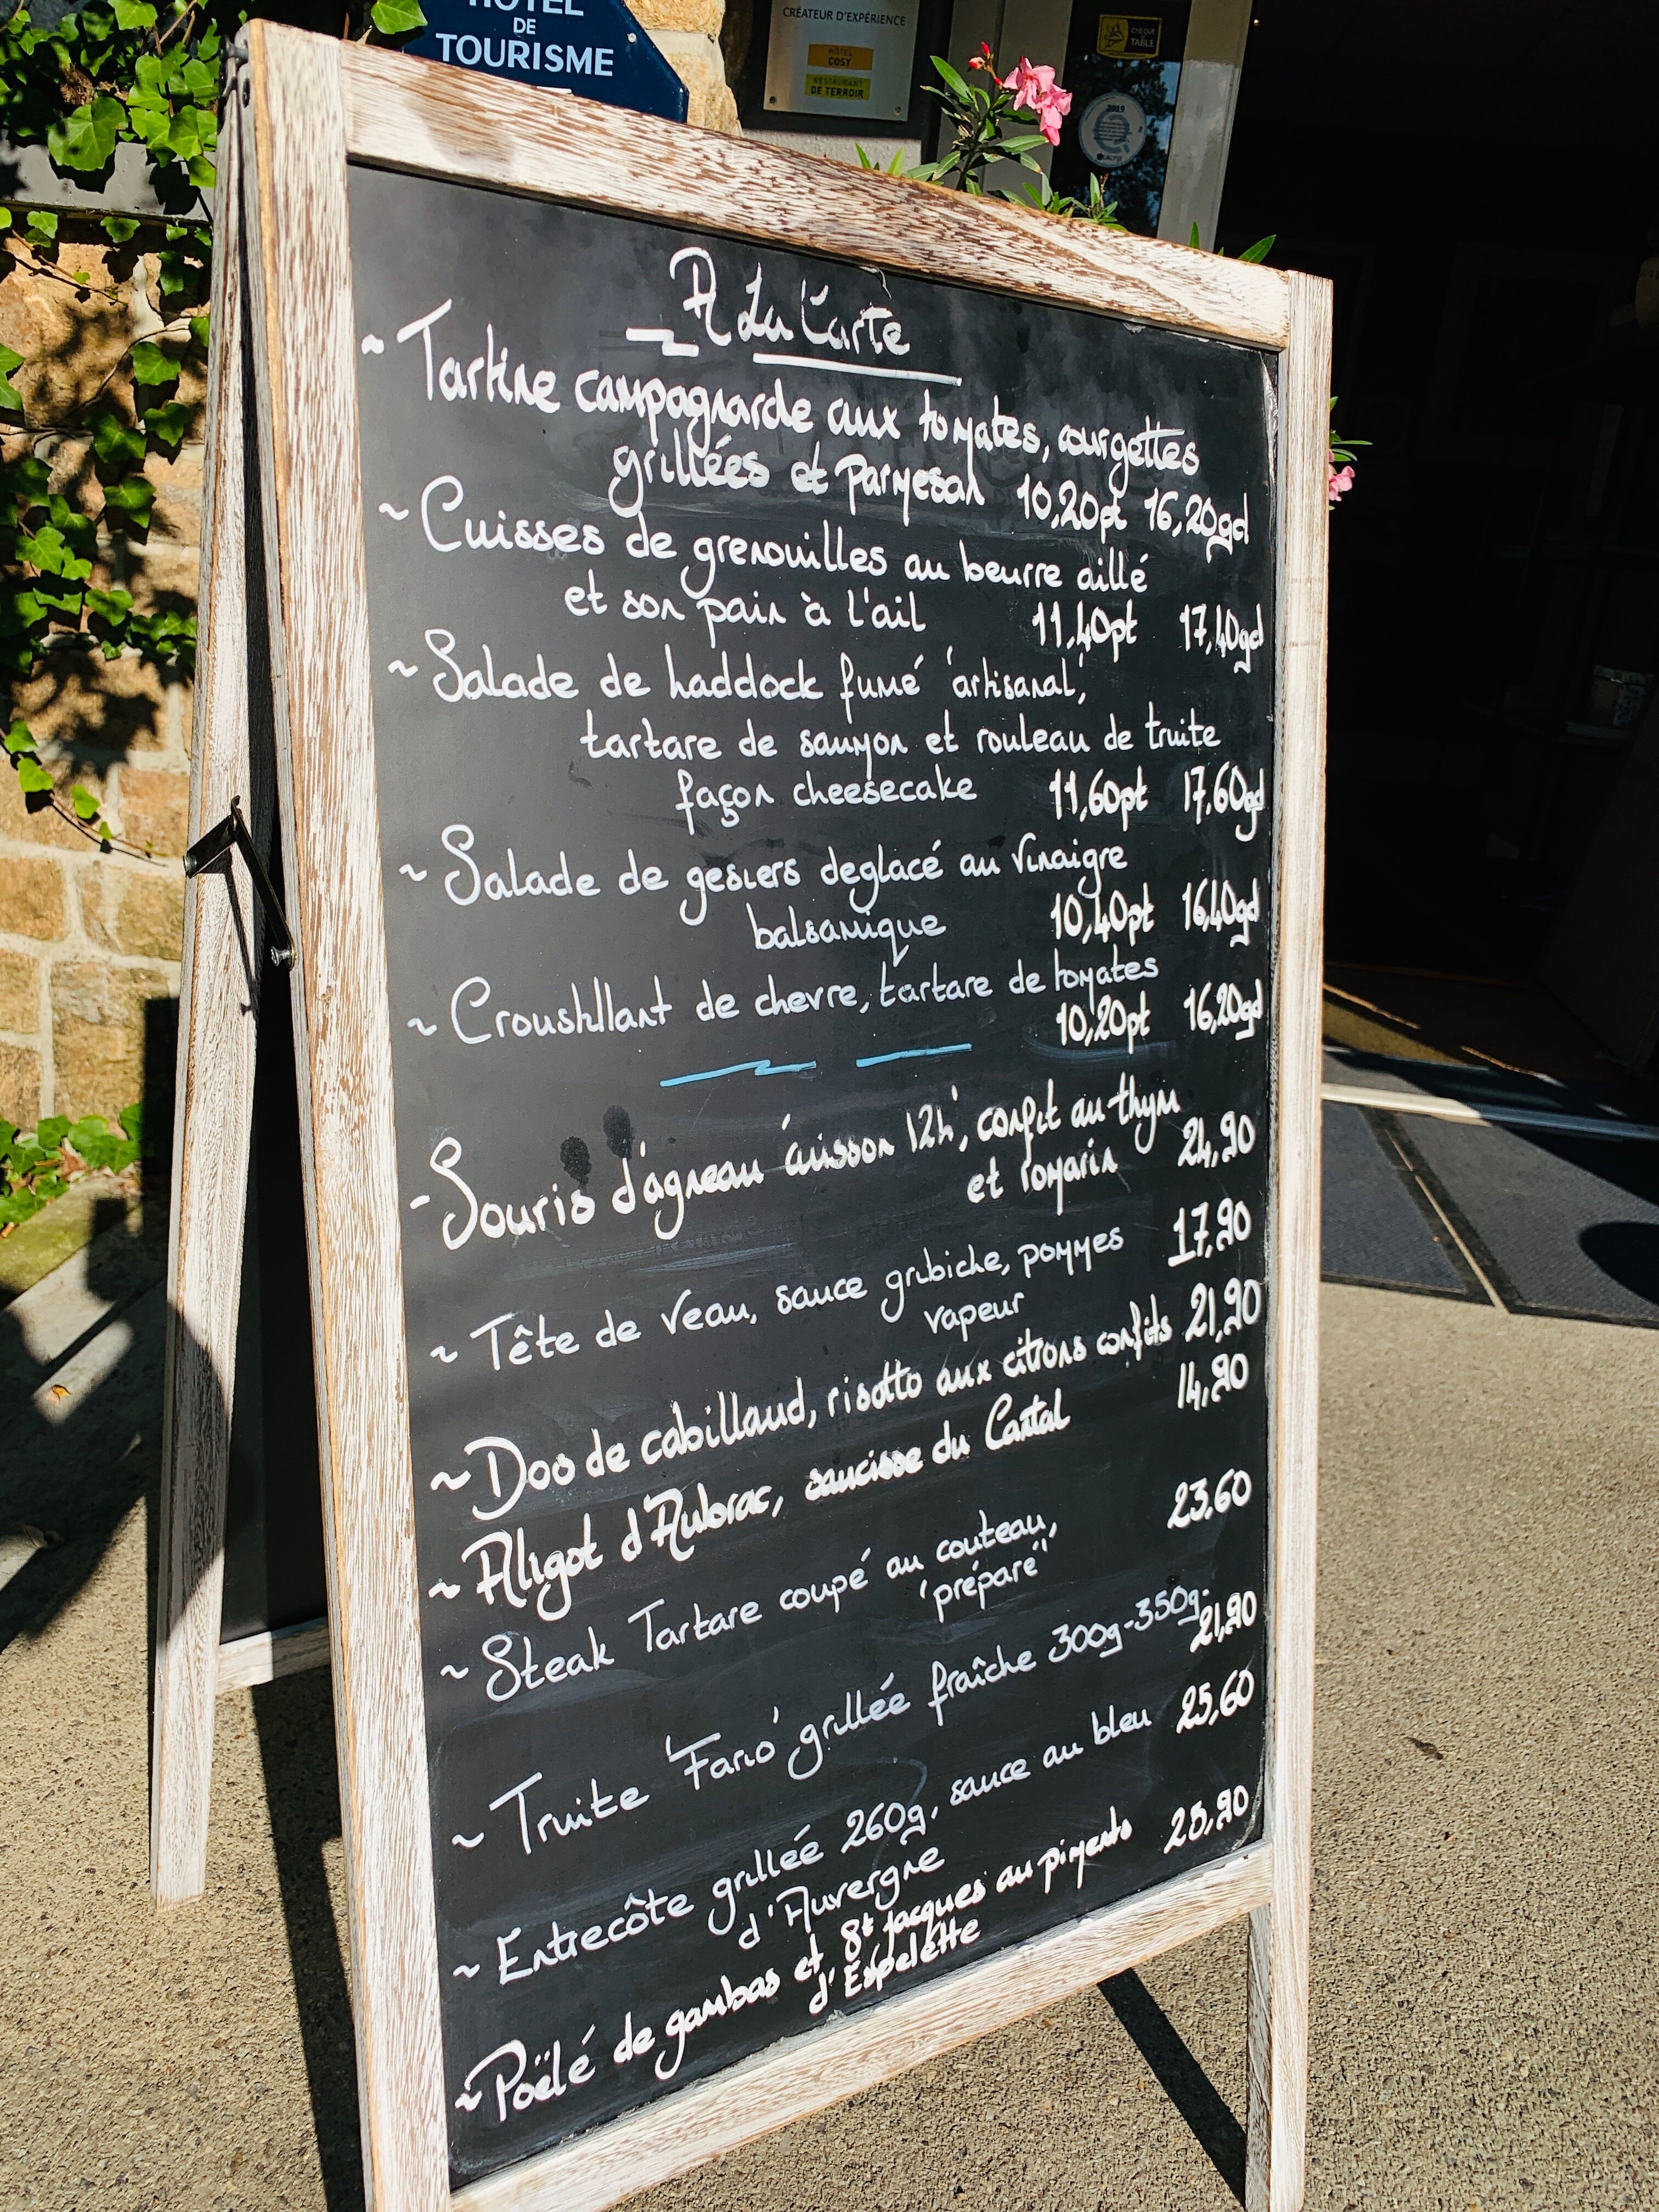 HÔTEL
DE
TOURISME
CRÉATEUR D'EXPÉRIENCE
HÔTEL
COSY
RESTAURANT
DE TERROIR
CHÈQUE
TABLE
2019
A La Carte
~ Tartine campagnarde aux tomates, courgettes
grillées et Parmesan 10,20pt 16,20gd
~ Cuisses de grenouilles au beurre aillé
et son pain à l'ail 11,40pt 17,40gd
~ Salade de haddock fumé 'artisanal',
tartare de saumon et rouleau de truite
façon cheesecake 11,60pt 17,60gd
~ Salade de gesiers deglacé au Vinaigre
balsamique 10,40pt 16,40gd
~ Croustillant de chevre, tartare de tomates
10,20pt 16,20gd
- Souris d'agneau 'cuisson 12h', confit au thym
et romarin 24,90
~ Tête de veau, sauce gribiche, pommes 17,90
vapeur
~ Dos de cabillaud, risotto aux citrons confits 21,90
~ Aligot d'Aubrac, saucisse du Cantal 14,90
~ Steak Tartare coupé au couteau, 23,60
'préparé'
~ Truite 'Fario' grillée fraîche 300g-350g. 21,90
~ Entrecôte grillée 260g, sauce au bleu 25,60
d'Auvergne
~ Poëlé de gambas et St jacques au pimento 25,90
d'Espelette